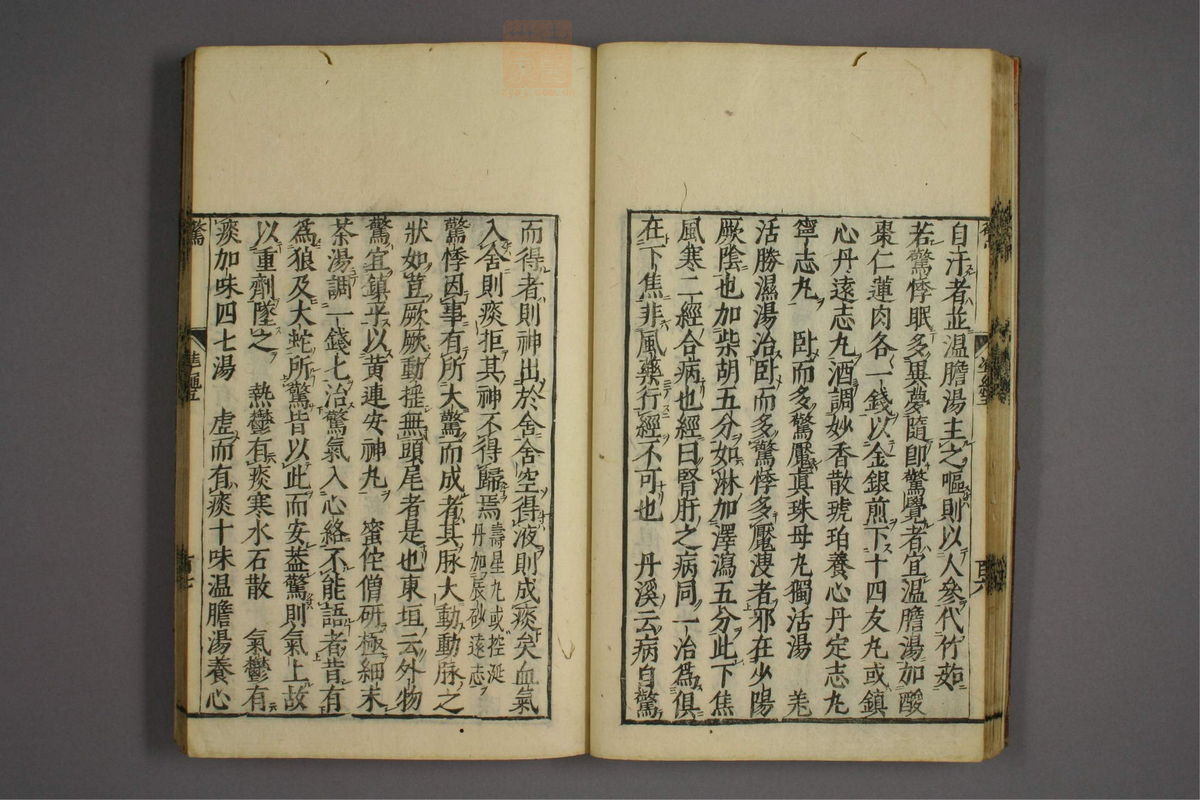 自汗者並温膽湯主之嘔則以人參代竹茹
若驚悸眠多異夢隨即驚覺者宜温膽湯如酸
棗仁蓮肉各一錢以金銀煎下十四友丸或鎮
心丹遠志丸酒調妙香散琥珀養心丹定志丸
寧志丸　臥而多驚魘真珠母丸獨活湯　羌
活勝濕湯治臥而多驚悸多魘溲者邪在少陽
厥陰也加柴胡五分如淋加澤瀉五分此下焦
風寒二經合病也經曰腎肝之病同一治爲俱
在下焦非風藥行經不可也　丹溪云病自驚
而得者則神出於舍舍空得液則成痰矣血氣
入舍則痰拒其神不得歸焉壽星丸或控涎丹加辰砂遠志
驚悸因事有所大驚而成者其脉大動動脉之
狀如荳厥厥動揺無頭尾者是也東垣云外物
驚宜鎮平以黄連安神丸　蜜佗僧研極細末
茶湯調一錢七治驚氣入心絡不能語者昔有
爲狼及大蛇所驚皆以此而安蓋驚則氣上故
以重劑墜之　熱鬱有痰寒水石散　氣鬱有
痰加味四七湯　虚而有痰十味温膽湯養心
驚
百七
百六